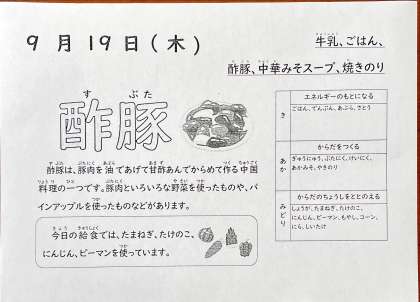 9月19日(木)
牛乳、ごはん、
酢豚、中華みそスープ、焼きのり
すぶた
酢豚
酢豚は、豚肉を油であげて甘酢あんでからめて作る中国
料理の一つです。豚肉といろいろな野菜を使ったものや、パ
インアップルを使ったものなどがあります。
今日の給食では、たまねぎ、たけのこ、
にんじん、ピーマンを使っています。
エネルギーのもとになる
き
ごはん、でんぷん、あぶら、さとう
からだをつくる
あか
ぎゅうにゅう、ぶたにく、けいにく、
あかみそ、やきのり
からだのちょうしをととのえる
みどり
しょうが、たまねぎ、たけのこ、
にんじん、ピーマン、もやし、コーン、
にら、しいたけ